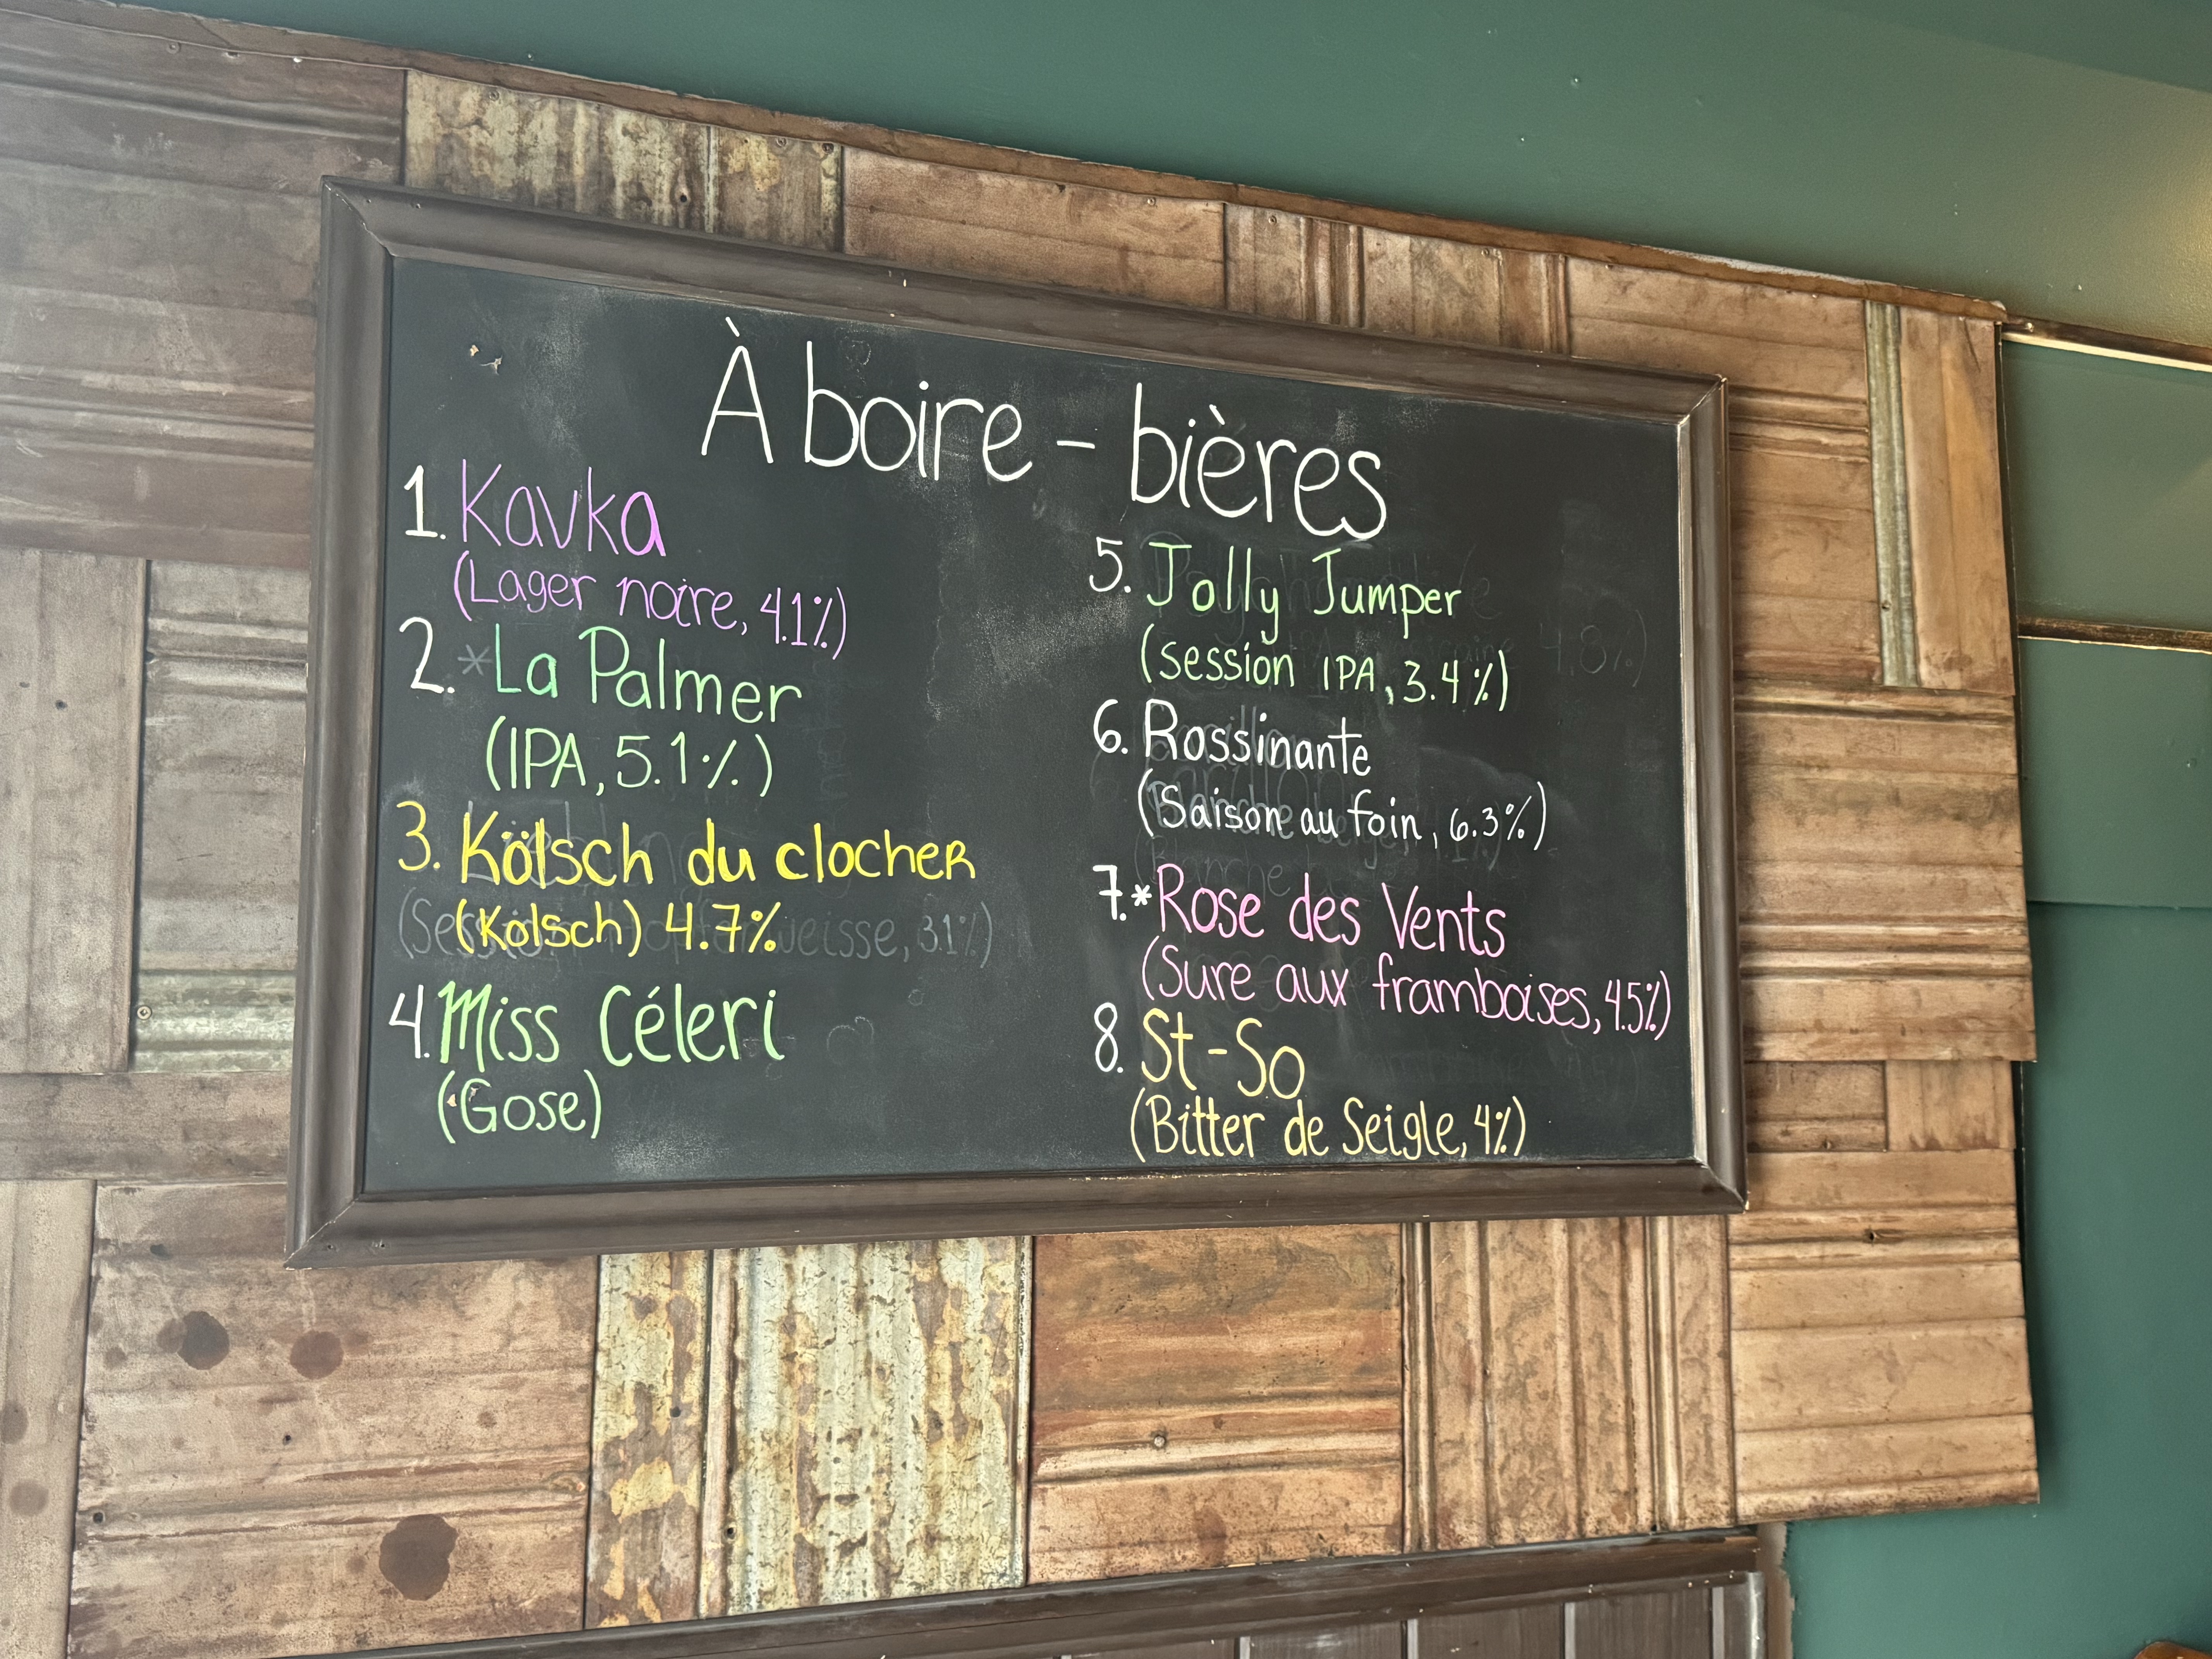 À boire - bières
1. Kavka
(Lager noire, 4.1%)
2. *La Palmer
(IPA, 5.1%)
3. Kölsch du clocher
(Kölsch) 4.7%
4. Miss Céleri
(Gose)
5. Jolly Jumper
(session IPA, 3.4%)
6. Rossinante
(Saison au foin, 6.3%)
7.*Rose des Vents
(Sure aux framboises, 4.5%)
8. St-So
(Bitter de Seigle, 4%)